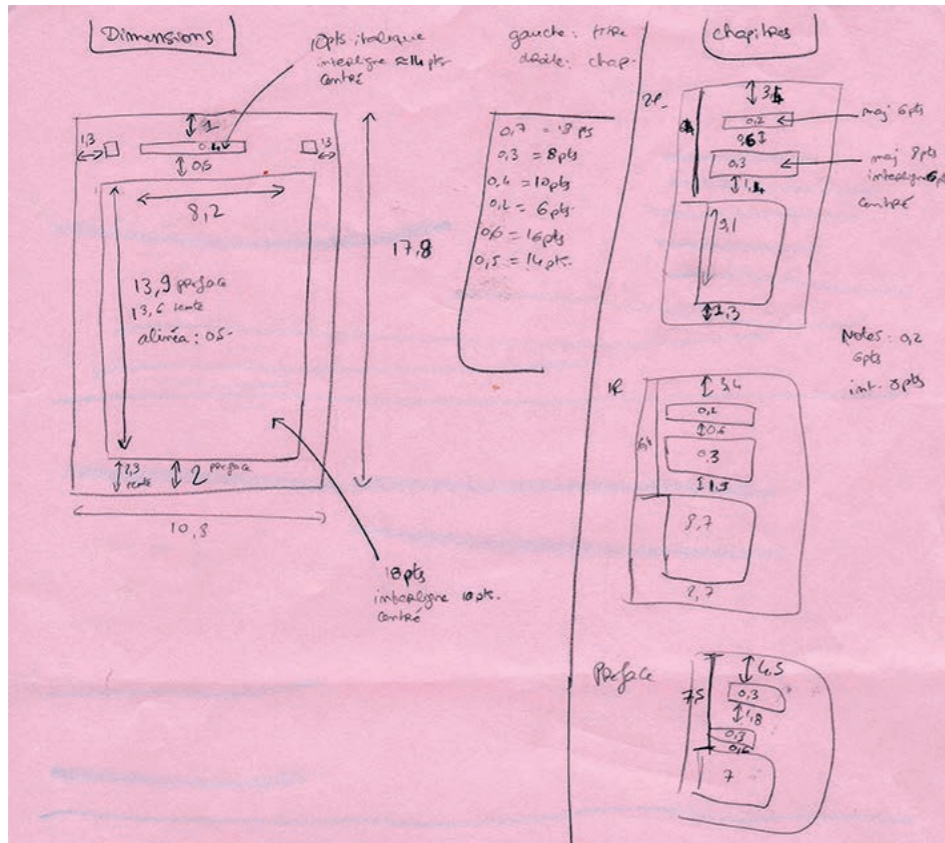 Dimensions
10pts italique
interligne ≈ 14 pts
centré
1
1,3
0.4
1,3
0,5
8,2
13,9 preface
13,6 reste
alinéa : 05-
17,8
2,3
reste
2 preface
10,8
interligne 10 pts.
centré
gauche : titre
droite : chap-
0,3 = 8pts
0,4 = 10pts
0,2 = 6pts
0,6 = 16pts
0,5 = 14pts.
chapitres
3,4
0,2
maj 6pts
0,3
maj 8pts
centré
9,1
2,3
Notes : 0,2
6pts
int. 8pts
1R
3,4
0,2
0,6
6,4
0,3
8,7
2,7
Preface
4,5
7,5
0,3
1,8
0,3
0,6
7